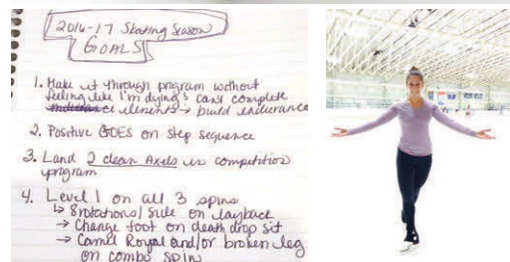 2016-17 Skating Season
GOALS
1. Make it through program without
feeling like I'm dying & can't complete
elements → build endurance
2. Positive GOES on step sequence
3. Land 2 clean Axels in competition
program
4. Level 1 on all 3 spins
↳ 8 rotations/side on layback
→ Change foot on death drop sit
→ Camel Royal and/or broken leg
on combo spin